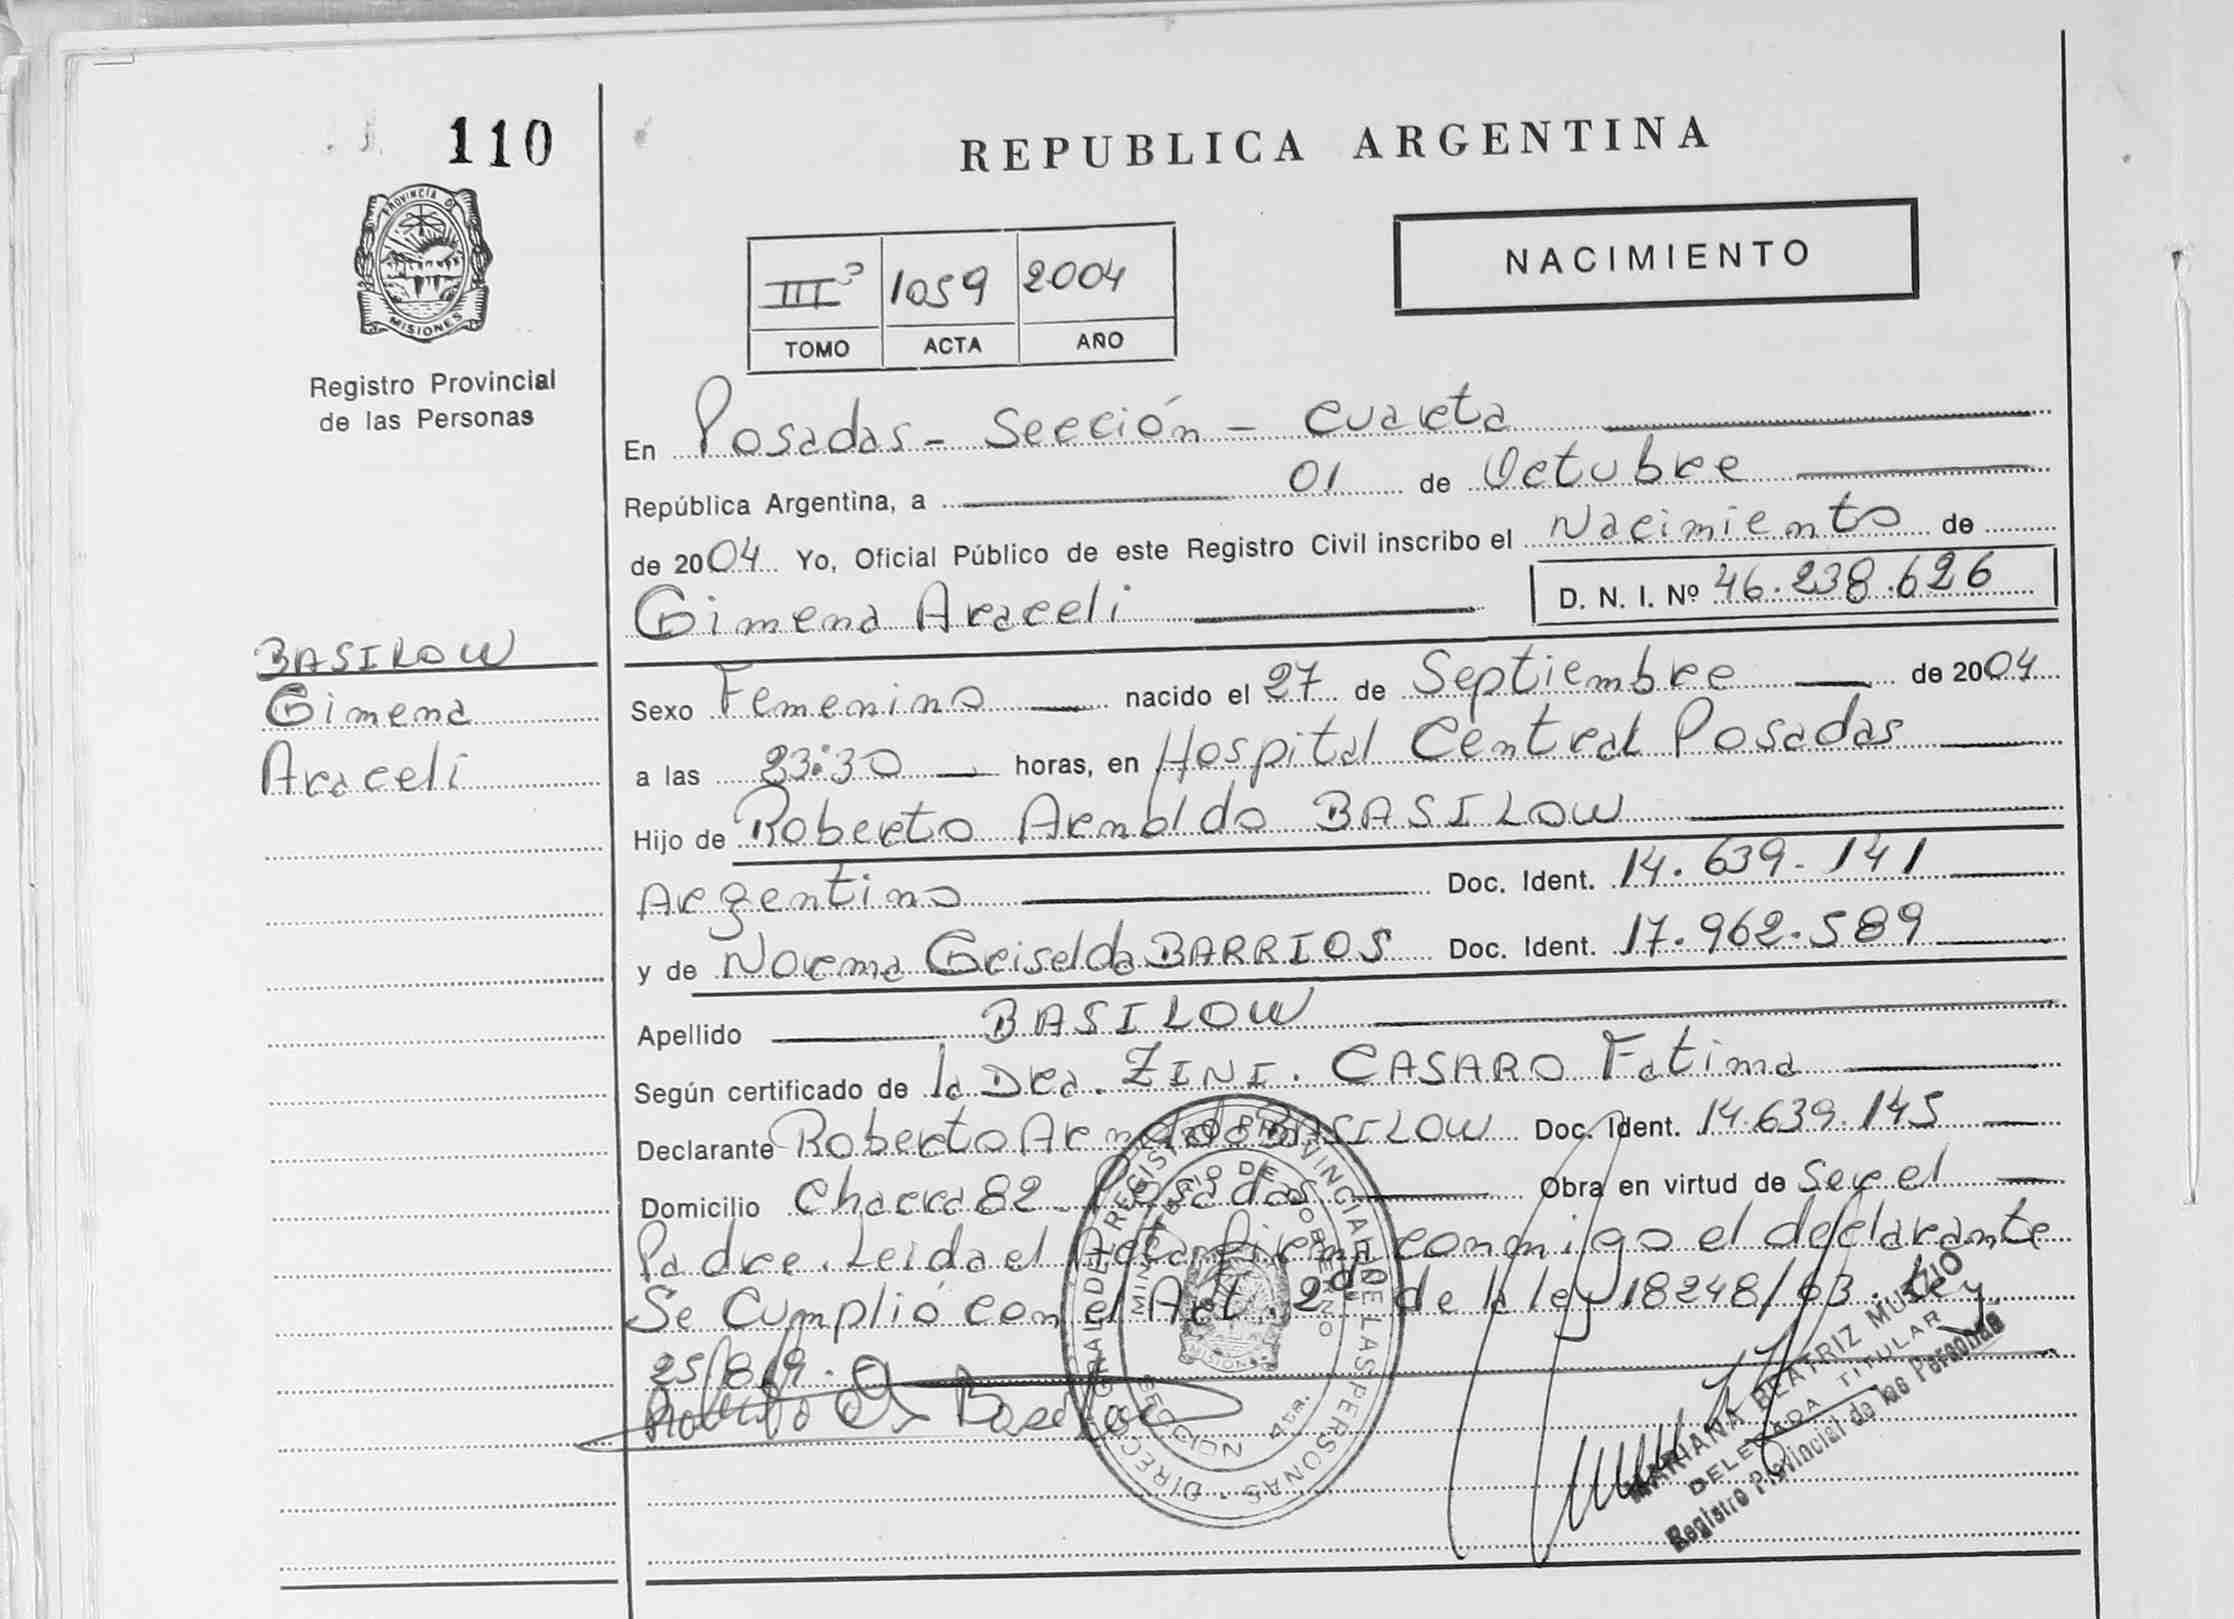 110
REPUBLICA ARGENTINA
PROVINCIA DE
MISIONES
Registro Provincial
de las Personas
NACIMIENTO
III 1059 2004
TOMO ACTA AÑO
En Posadas - Sección - Cuarta
República Argentina, a 01 de Octubre
de 2004 Yo, Oficial Público de este Registro Civil inscribo el Nacimiento de
Gimena Araceli D. N. I. Nº 46.238.626
BASILOW
Gimena
Araceli
Sexo Femenino nacido el 27 de Septiembre de 2004
a las 23:30 horas, en Hospital Central Posadas
Hijo de Roberto Arnoldo BASILOW
Argentino Doc. Ident. 14.639.141
y de Norma Griselda BARRIOS Doc. Ident. 17.962.589
Apellido BASILOW
Según certificado de la Dra. ZINI. CASARO Fatima
Declarante Roberto Arnoldo BASILOW Doc. Ident. 14.639.145
Domicilio Chacra 82 - Posadas Obra en virtud de Ser el
Padre. Leida el Acta firma conmigo el declarante
Se Cumplió con el Art. 2do de la ley 18248/63. Ley
25/8/9.
DIRECC. GRAL. DEL REGISTRO PROVINCIAL DE LAS PERSONAS
MINISTERIO DE GOBIERNO
MISIONES
SECCION 4ta.
MARIANA BEATRIZ MUZZIO
DELEGADA TITULAR
Registro Provincial de las Personas